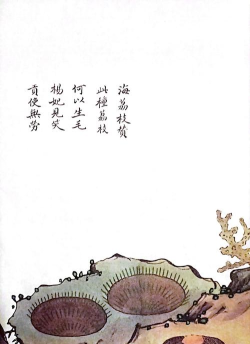 海荔枝贊
此種荔枝
何以生毛
楊妃見笑
貢使無勞